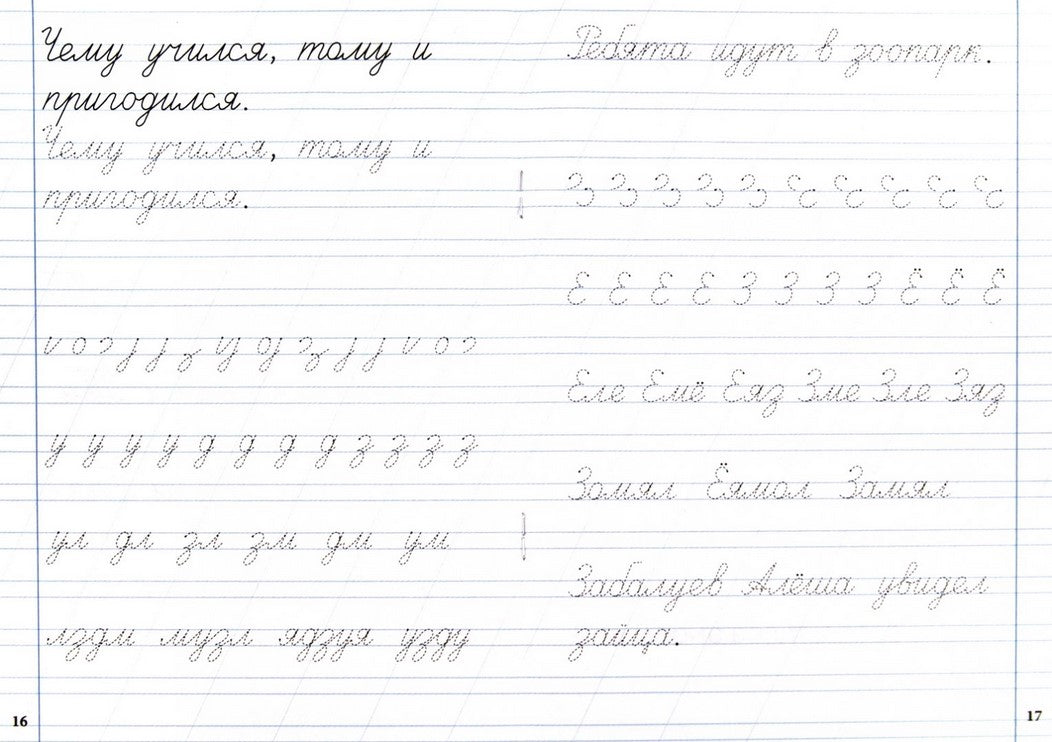 Чему учился, тому и
пригодился.
Чему учился, тому и
пригодился.
у у у у д д д д з з з з
ул дл зл зм дм ум
лздм музл ядзуя узду
16
Ребята идут в зоопарк.
Е Е Е Е З З З З Ё Ё Ё
Еле Емё Еяз Зме Зле Зяз
Зомял Ёямол Замял
Забалуев Алёша увидел
зайца.
17